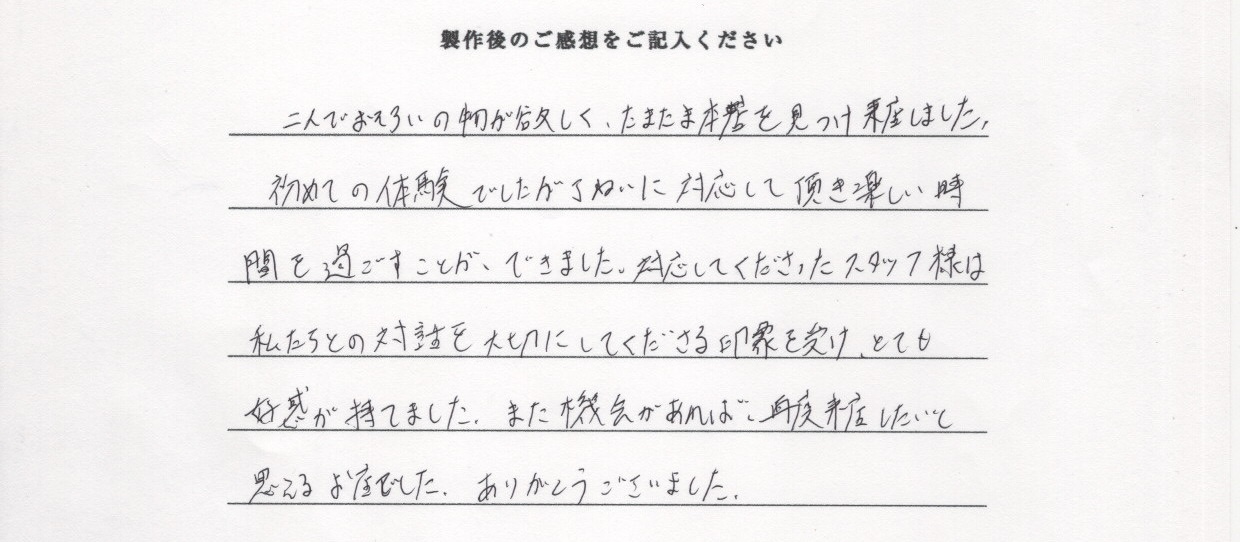 製作後のご感想をご記入ください
二人でおそろいの物が欲しく、たまたま本店を見つけ来店しました。
初めての体験でしたが丁ねいに対応して頂き楽しい時
間を過ごすことが、できました。対応してくださったスタッフ様は
私たちとの対話を大切にしてくださる印象を受け、とても
好感が持てました。また機会があれば、再度来店したいと
思えるお店でした。ありがとうございました。